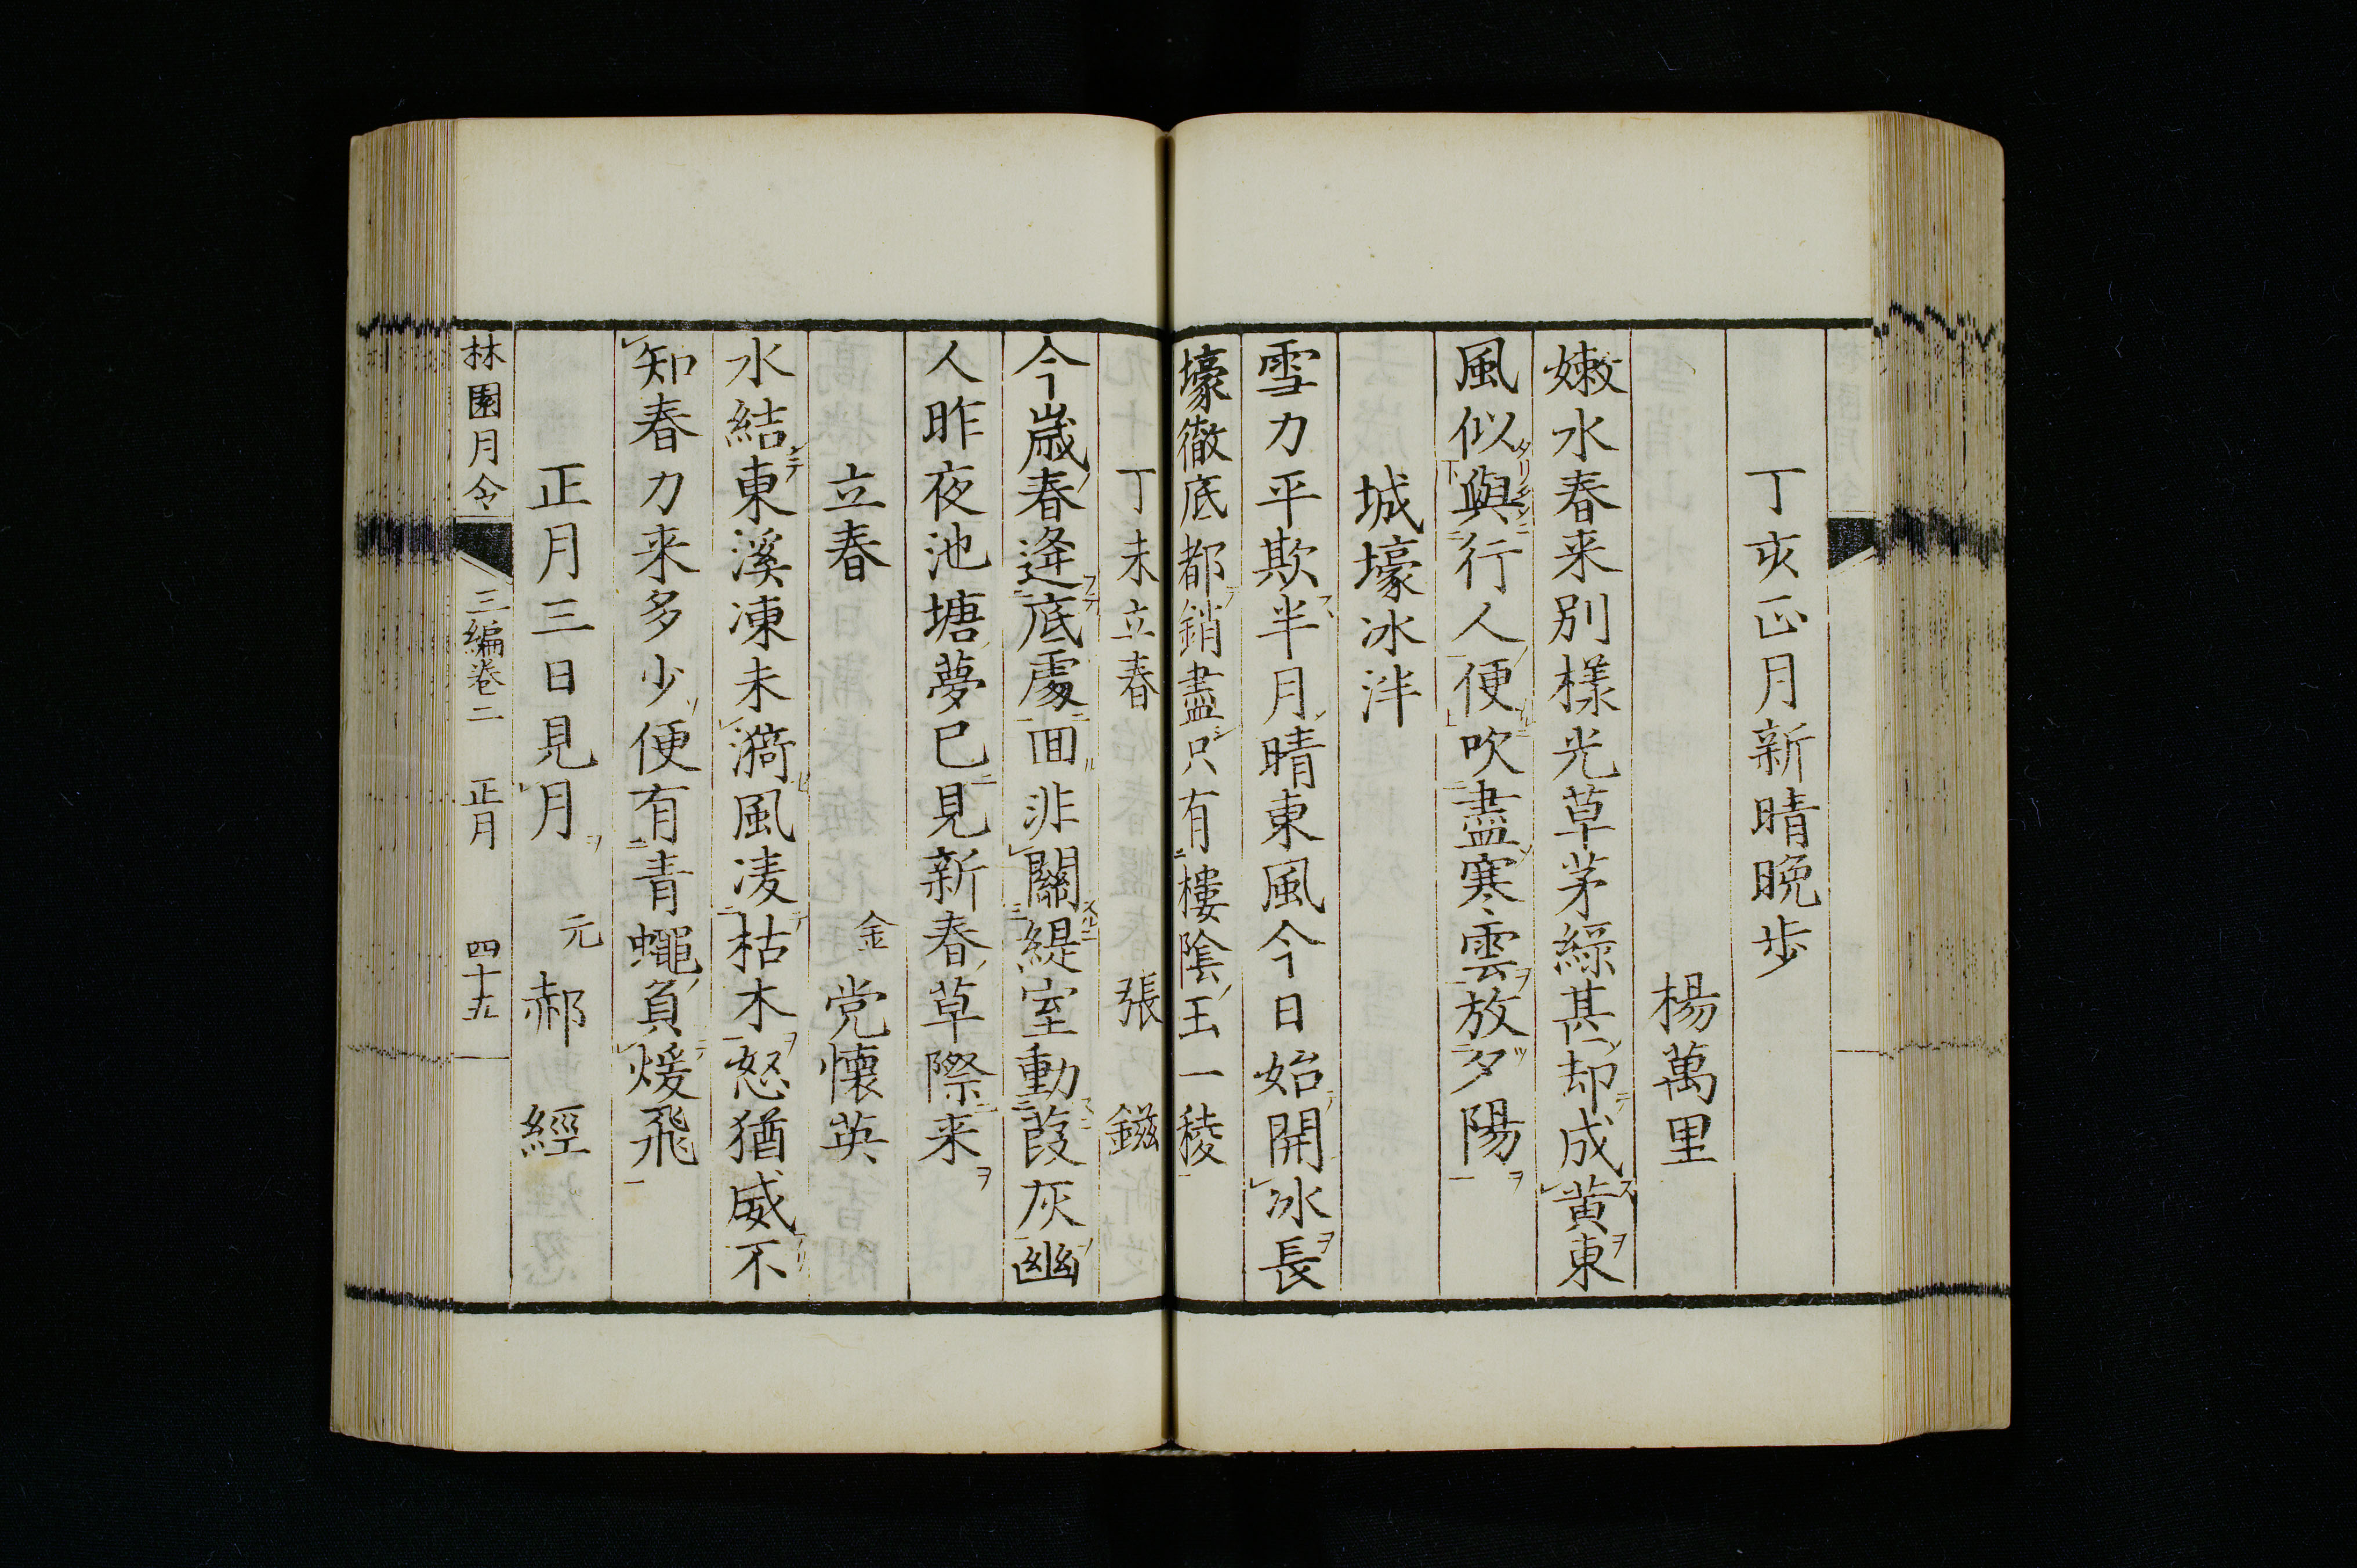 丁亥正月新晴晩歩
楊萬里
嫩水春来別樣光草茅綠甚却成黄東
風似與行人便吹盡寒雲放夕陽
城壕冰泮
雪力平欺半月晴東風今日始開冰長
壕徹底都銷盡只有樓陰玉一稜
丁未立春 張 鎡
今歳春逢底處面非關緹室動葭灰幽
人昨夜池塘夢已見新春草際来
立春 金 党懐英
水結東溪凍未漪風凌枯木怒猶威不
知春力来多少便有青蠅負煖飛
正月三日見月 元 郝 經
林園月令 三編巻二 正月 四十五